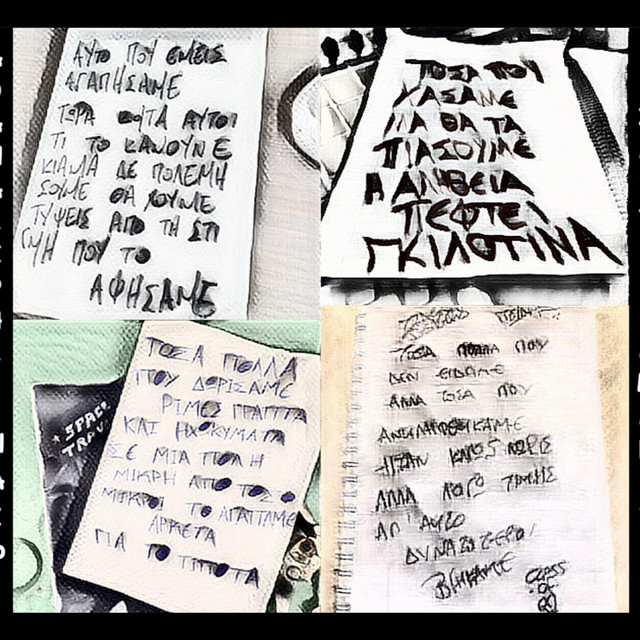 ΑΥΤΟ ΠΟΥ ΕΜΕΙΣ
ΑΓΑΠΗΣΑΜΕ
ΤΩΡΑ ΑΥΤΟΙ
ΤΙ ΤΟ ΚΑΝΟΥΝΕ
ΚΙ ΑΜΑ ΔΕ ΠΟΛΕΜΗ
ΣΟΥΜΕ ΘΑ ΧΟΥΜΕ
ΤΥΨΕΙΣ ΑΠΟ ΤΗ ΣΤΙ
ΓΜΗ ΠΟΥ ΤΟ
ΑΦΗΣΑΜΕ
ΤΟΣΑ ΠΟΥ
ΧΑΣΑΜΕ
ΜΑ ΘΑ ΤΑ
ΠΙΑΣΟΥΜΕ
Η ΑΛΗΘΕΙΑ
ΠΕΦΤΕΙ
ΓΚΙΛΟΤΙΝΑ
SPACE
ΤΟΣΑ ΠΟΛΛΑ
ΠΟΥ ΔΩΡΙΣΑΜΕ
ΡΙΜΕΣ ΓΡΑΠΤΑ
ΚΑΙ ΗΧΟΚΥΜΑΤΑ
ΣΕ ΜΙΑ ΠΟΛΗ
ΜΙΚΡΗ ΑΠΟ ΤΟΣΟ
ΜΙΚΡΟΙ ΤΟ ΑΓΑΠΑΜΕ
ΑΡΚΕΤΑ
ΓΙΑ ΤΟ ΤΙΠΟΤΑ
ΤΟΣΑ ΠΟΛΛΑ ΠΟΥ
ΔΕΝ ΕΙΔΑΜΕ
ΑΛΛΑ ΤΟΣΑ ΠΟΥ
ΑΝΤΙΛΗΦΘΗΚΑΜΕ
ΗΤΑΝ ΚΑΠΩΣ ΝΩΡΙΣ
ΑΛΛΑ ΛΟΓΩ ΤΡΙΤΗΣ
ΑΠ' ΑΥΤΟ
ΔΥΝΑΤΟΤΕΡΟΙ
ΒΓΗΚΑΜΕ